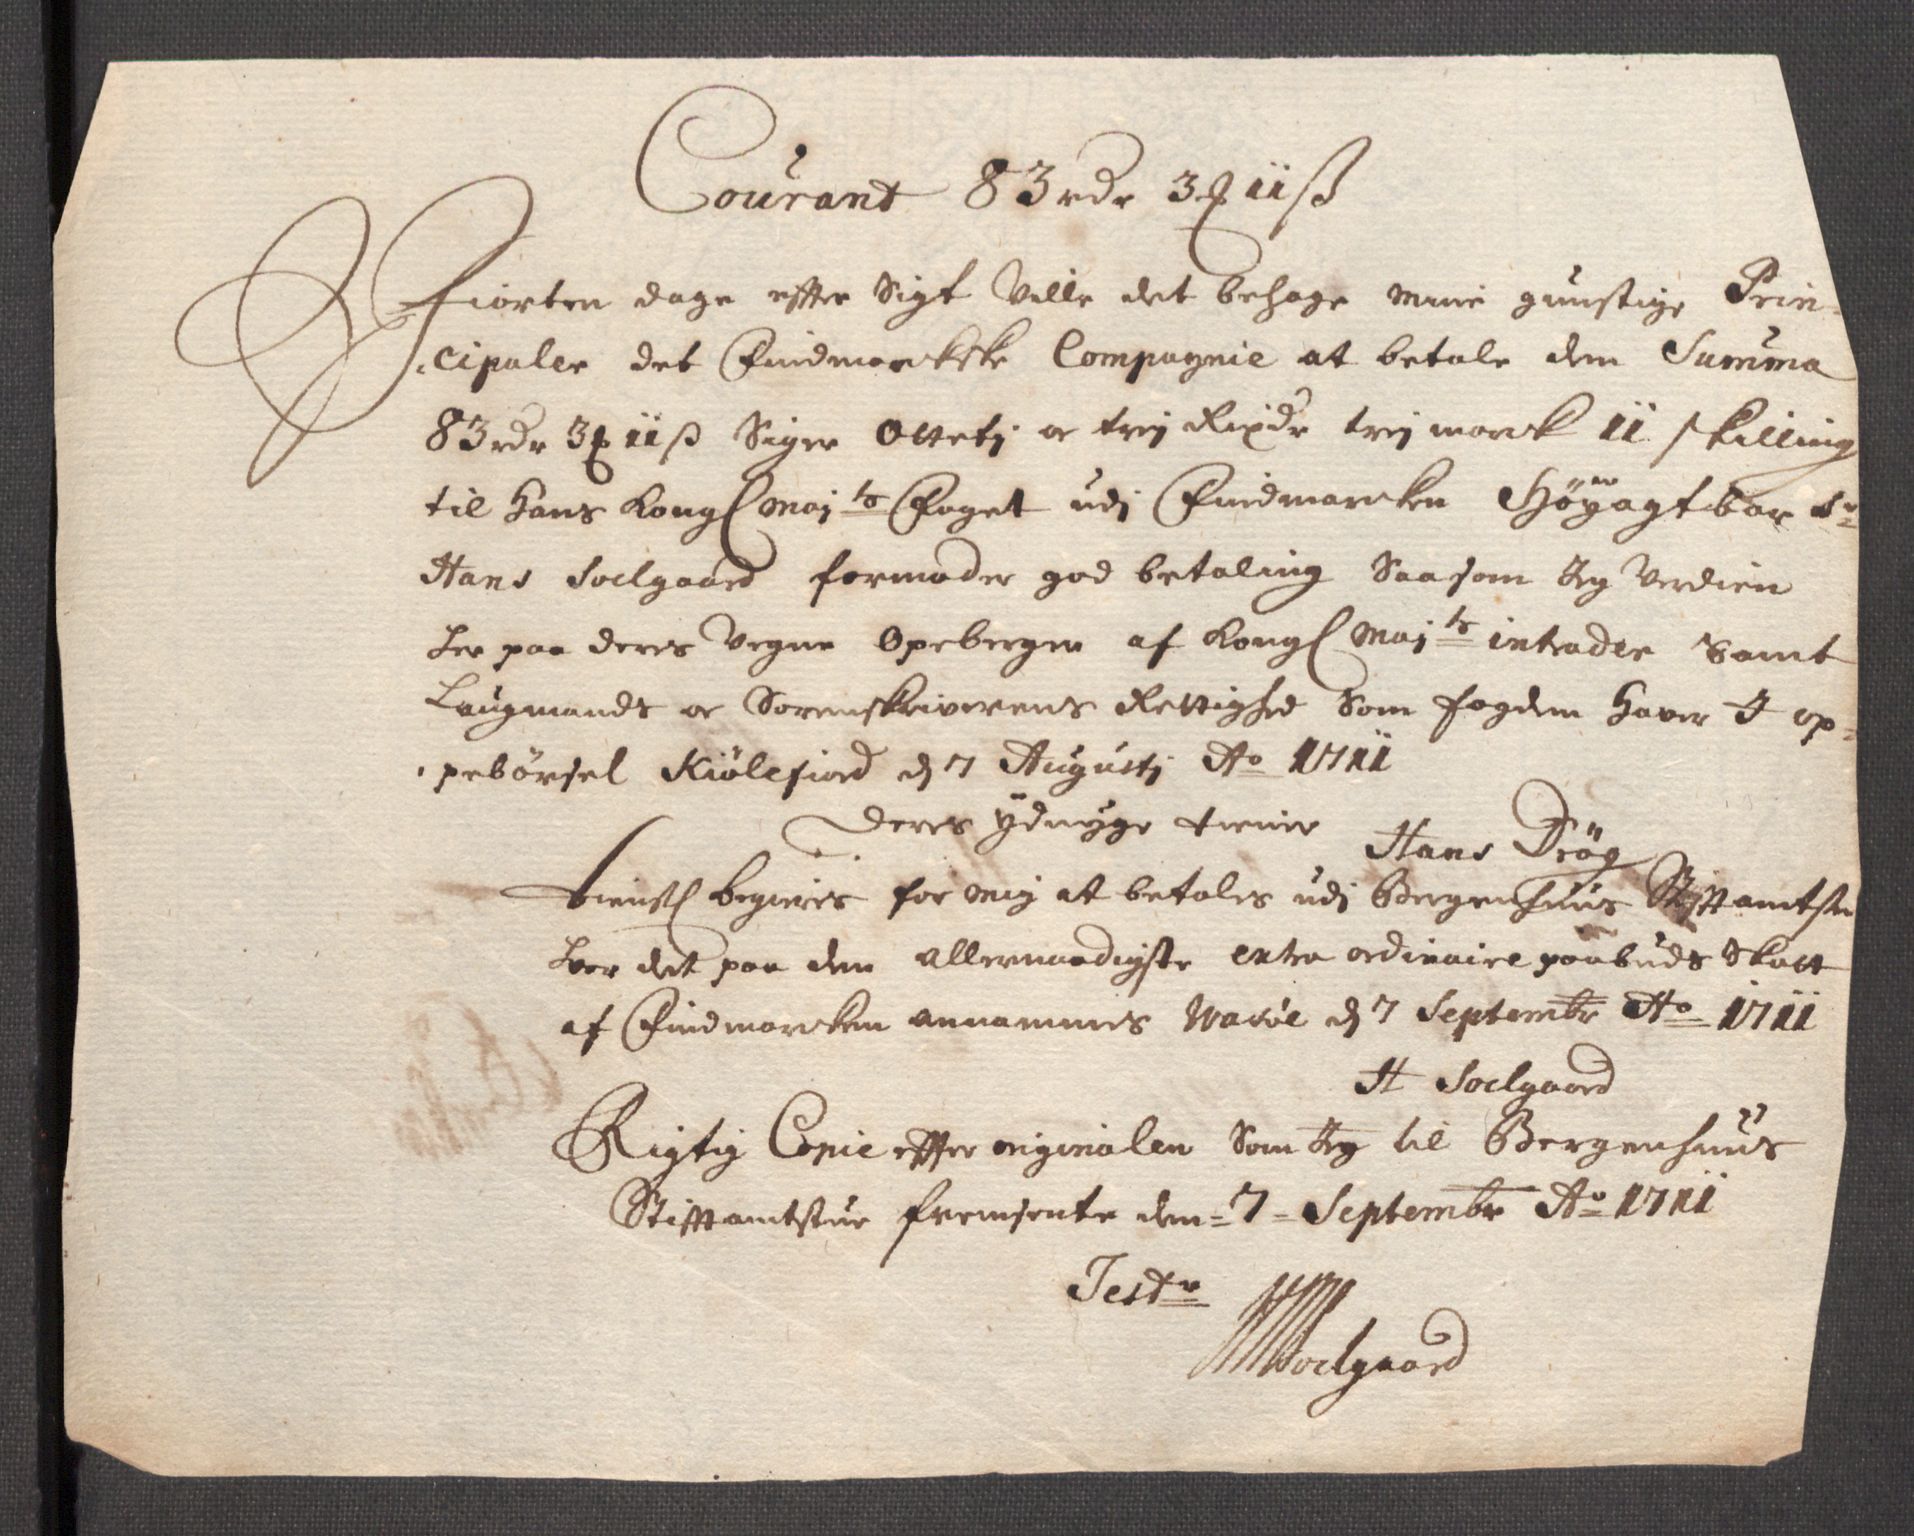 Courant 83 rdr 3 ℔ 11 ß
Fiorten dage effter Sigt Ville det behage mine gunstige Prin-
cipaler det Findmarckske Compagnie at betale den Summa
83 rdr 3 ℔ 11 ß Siger Otteti oc trej Rixdr trej marck 11 skilling
til Hans Kongl Maj ts Foget udj Findmarcken Høÿagtbar Sr
Hans Soelgaard formoder god betaling Saasom Jeg Verdien
her paa deres Vegne Opebergen af Kongl Maj ts intrader Samt
Laugmands oc Sorenskriverens Rettighed Som fogden haver I op-
pebørsel Kiølefiord d 7 Augustj Ao 1711
Deres Ydmyge tiener
Hans Drög
tienstl begieris for mig at betales udj Bergenhuus Stiftamtstue
hvor det paa den allernaadigste extra ordinaire paabuds Skatt
af Findmarcken annammes Wasöe d 7 Septembr Ao 1711
H Soelgaard
Rigtig Copie effter originalen Som Jeg til Bergenhuus
Stifftamtstue fremsente den 7 Septembr Ao 1711
Test
HSoelgaard